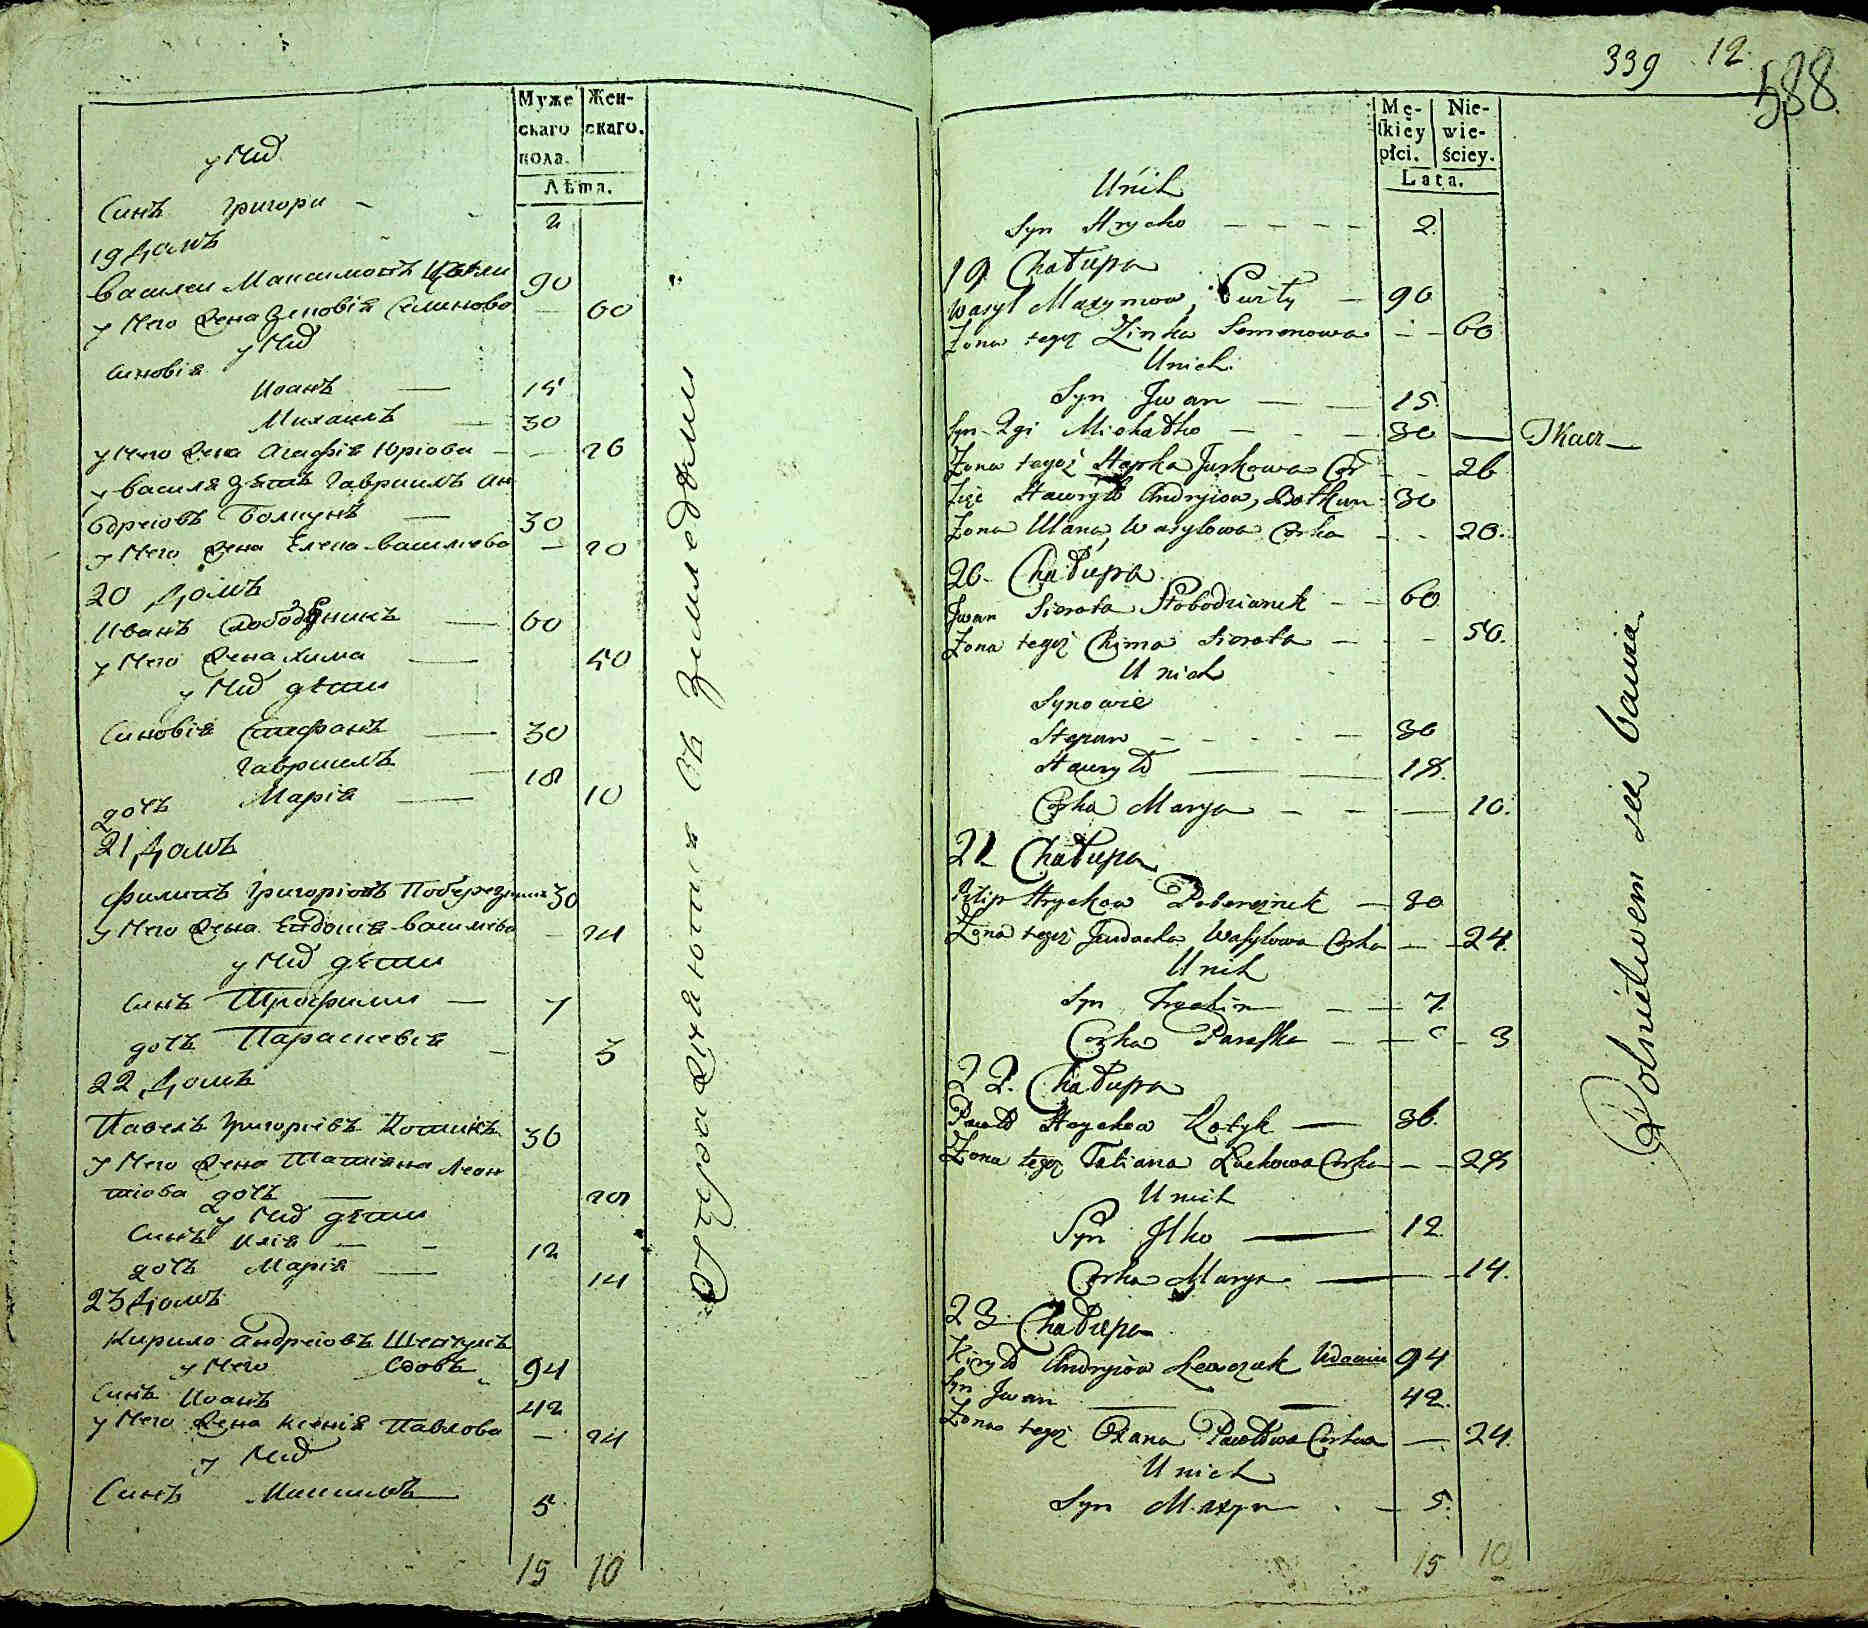 Муже
скаго
пола.
Жен-
скаго.
Лѣта.
у Них
Синъ Григори — 2
19 Домъ
Василеи Максимовъ 90
у Него жена Зеновія Семинова — 60
у Них
Синовія
Иоанъ — 15
Михаилъ — 30
у Него жена Агафія Юріова — 26
у Василя зять Гавриилъ Ан
дреіовъ Болкунъ — 30
у Него жена Елена Василіева — 20
20 Домъ
Иванъ Слободяникъ — 60
у Него жена Хима — 50
у Них дѣти
Синовія Стефанъ — 30
Гавриилъ — 18
дочь Марія — 10
21 Домъ
Филипъ Григоріовъ Побережникъ 30
у Него жена Евдокія Василіева — 24
у Них дѣти
Синъ Трофимъ — 7
дочь Параскевія — 3
22 Домъ
Павелъ Григоріевъ Котикъ 36
у Него жена Татіана Леон
тіова дочь — 28
у Них дѣти
Синъ Илія — 12
дочь Марія — 14
23 Домъ
Кирило Андреіовъ Шевчукъ
у Него вдовъ 94
Синъ Иоанъ 42
у Него жена Ксенія Павлова — 24
у Них
Синъ Максимъ 5
15 10
Упражняются въ Земледѣліи
339 12
588
Mę-
skiey
płci.
Nie-
wie-
ściey.
Lata.
U nich
Syn Hrycko — — — — 2.
19. Chałupa
Wasyl Maxymow, — 90
Żona tegoż Zinka Semenowa — — 60
U nich
Syn Jwan — — 15.
Syn 2gi Michałko — — 30 — Tkacz —
Żona tegoż Hapka Jurkowa Cor — — 26
Zięć Hawryło Andryiow, Bołkun 30
Żona Ulana, Wasylowa Corka — — 20.
20. Chałupa
Jwan Sierota Słobodzianik — — 60
Żona tegoż Chima Sierota — — — 50.
U nich
Synowie
Stepan — — — — 30
Hawryło — — 18.
Corka Marya — — — 10.
21 Chałupa
Filip Hryckow Pobereznik — 30
Żona tegoż Jewdocha Wasylowa Corka — — 24.
U nich
Syn Trochim — — 7.
Corka Paraska — — — 3
22. Chałupa
Pawło Hryckow Kotyk — 36.
Żona tegoż Tatiana Lackowa Corka — — 28
U nich
Syn Jlko — 12
Corka Marya — — 14.
23. Chałupa
Kiryło Andryiow Szewczuk Wdowiec 94
Syn Jwan — — 42.
Żona tegoż Oxana Pawłowa Corka — 24.
U nich
Syn Maxym . — 5.
15 10
Rolnictwem się bawią